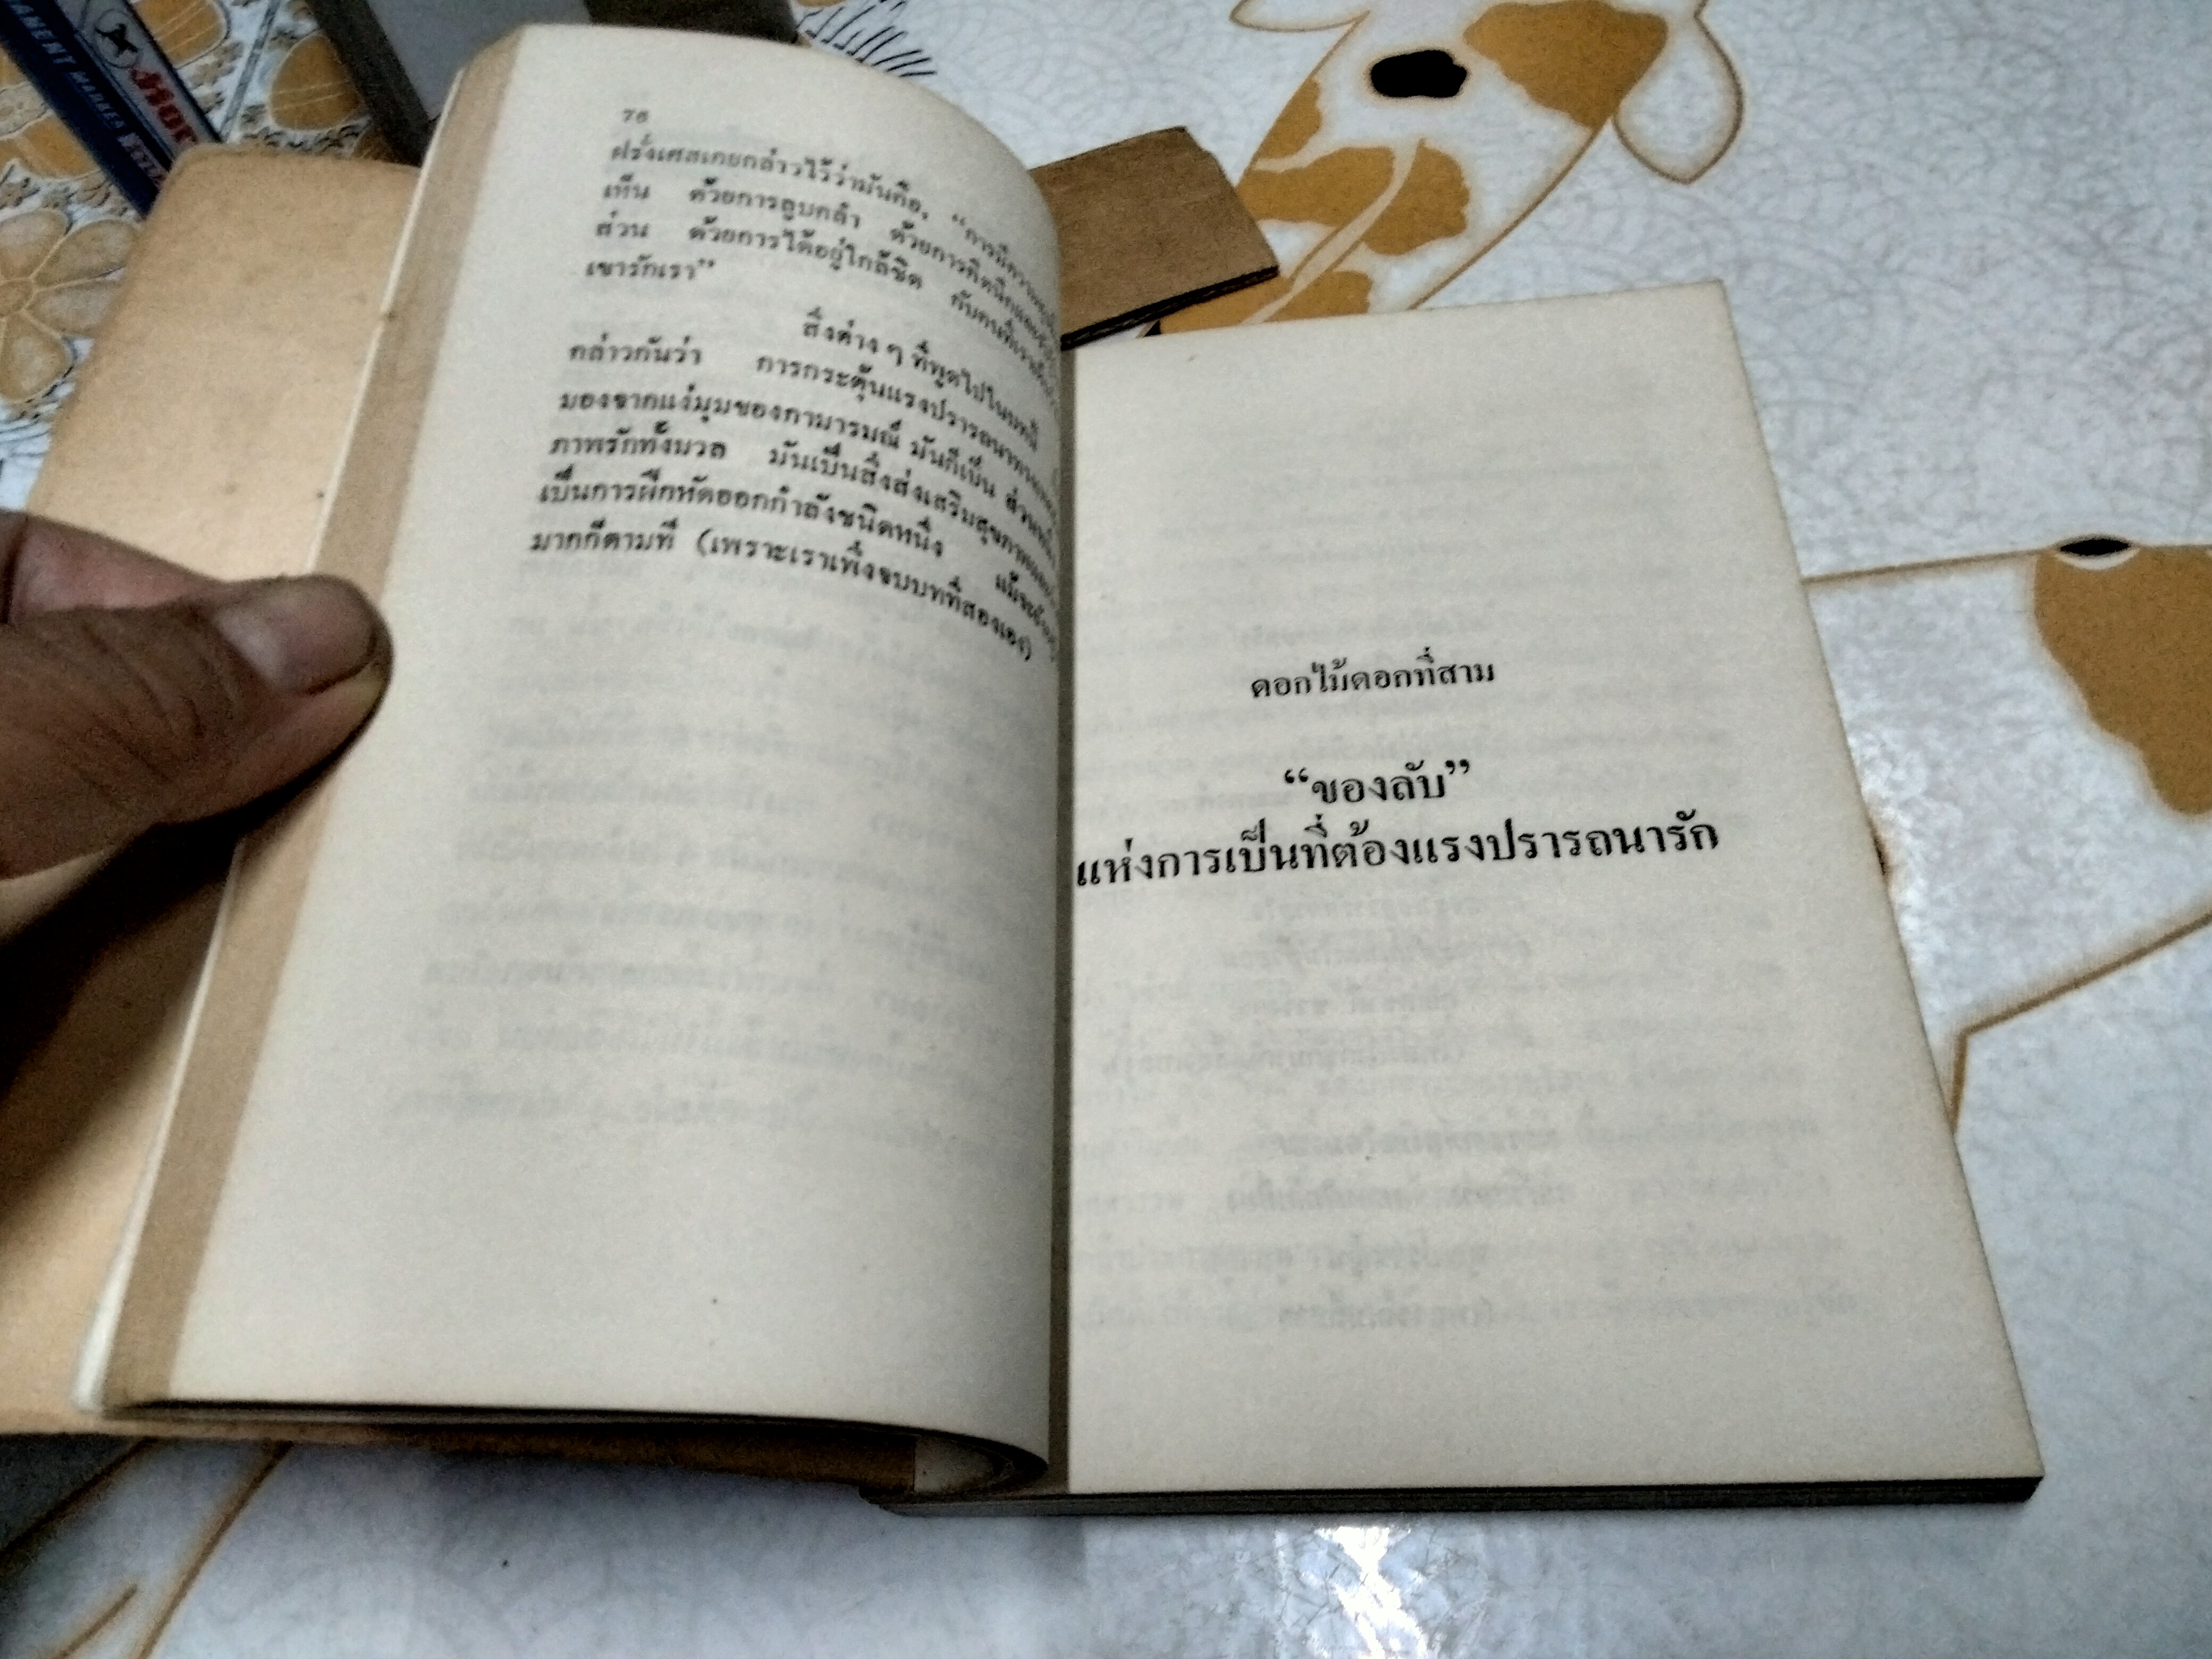 78
ฝรั่งเศสเคยกล่าวไว้ว่ามันคือ, “การมีความ
เห็น ด้วยการลูบคลำ ด้วยการคิดนึกและ
ส่วน ด้วยการได้อยู่ใกล้ชิด กับคนที่เรารัก
เขารักเรา”
สิ่งต่าง ๆ ที่พูดไปในบทนี้
กล่าวกันว่า การกระตุ้นแรงปรารถนาทาง
มองจากแง่มุมของกามารมณ์ มันก็เป็น ส่วนหนึ่ง
ภาพรักทั้งมวล มันเป็นสิ่งส่งเสริมสุขภาพ
เป็นการฝึกหัดออกกำลังชนิดหนึ่ง แม้จะ
มากก็ตามที (เพราะเราเพิ่งจบบทที่สองเอง)
ดอกไม้ดอกที่สาม
“ของลับ”
แห่งการเป็นที่ต้องแรงปรารถนารัก